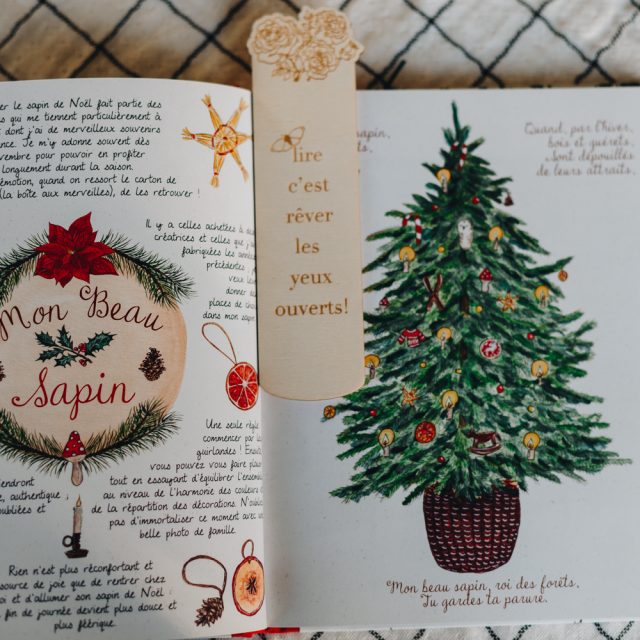 er le sapin de Noël fait partie des
s qui me tiennent particulièrement à
t dont j'ai de merveilleux souvenirs
nce. Je m'y adonne souvent dès
vembre pour pouvoir en profiter
longuement durant la saison.
émotion, quand on ressort le carton de
(la boîte aux merveilles), de les retrouver !
Il y a celles achetées à d
créatrices et celles que j
fabriquées les année
précédentes ; 
veux le
donner de
places de ch
dans mon sapi
Mon Beau
Sapin
Une seule règle
commencer par le
guirlandes ! Ensuit
vous pouvez vous faire plais
tout en essayant d'équilibrer l'ensem
au niveau de l'harmonie des couleurs 
de la répartition des décorations. N'oubli
pas d'immortaliser ce moment avec un
belle photo de famille.
endront
e, authentique
oubliées et
Rien n'est plus réconfortant et
source de joie que de rentrer chez
oi et d'allumer son sapin de Noël :
a fin de journée devient plus douce et
plus féérique.
lire
c'est
rêver
les
yeux
ouverts!
apin,
s.
Quand, par l'hiver,
bois et guérets,
Sont dépouillés
de leurs attraits,
Mon beau sapin, roi des forêts,
Tu gardes ta parure.